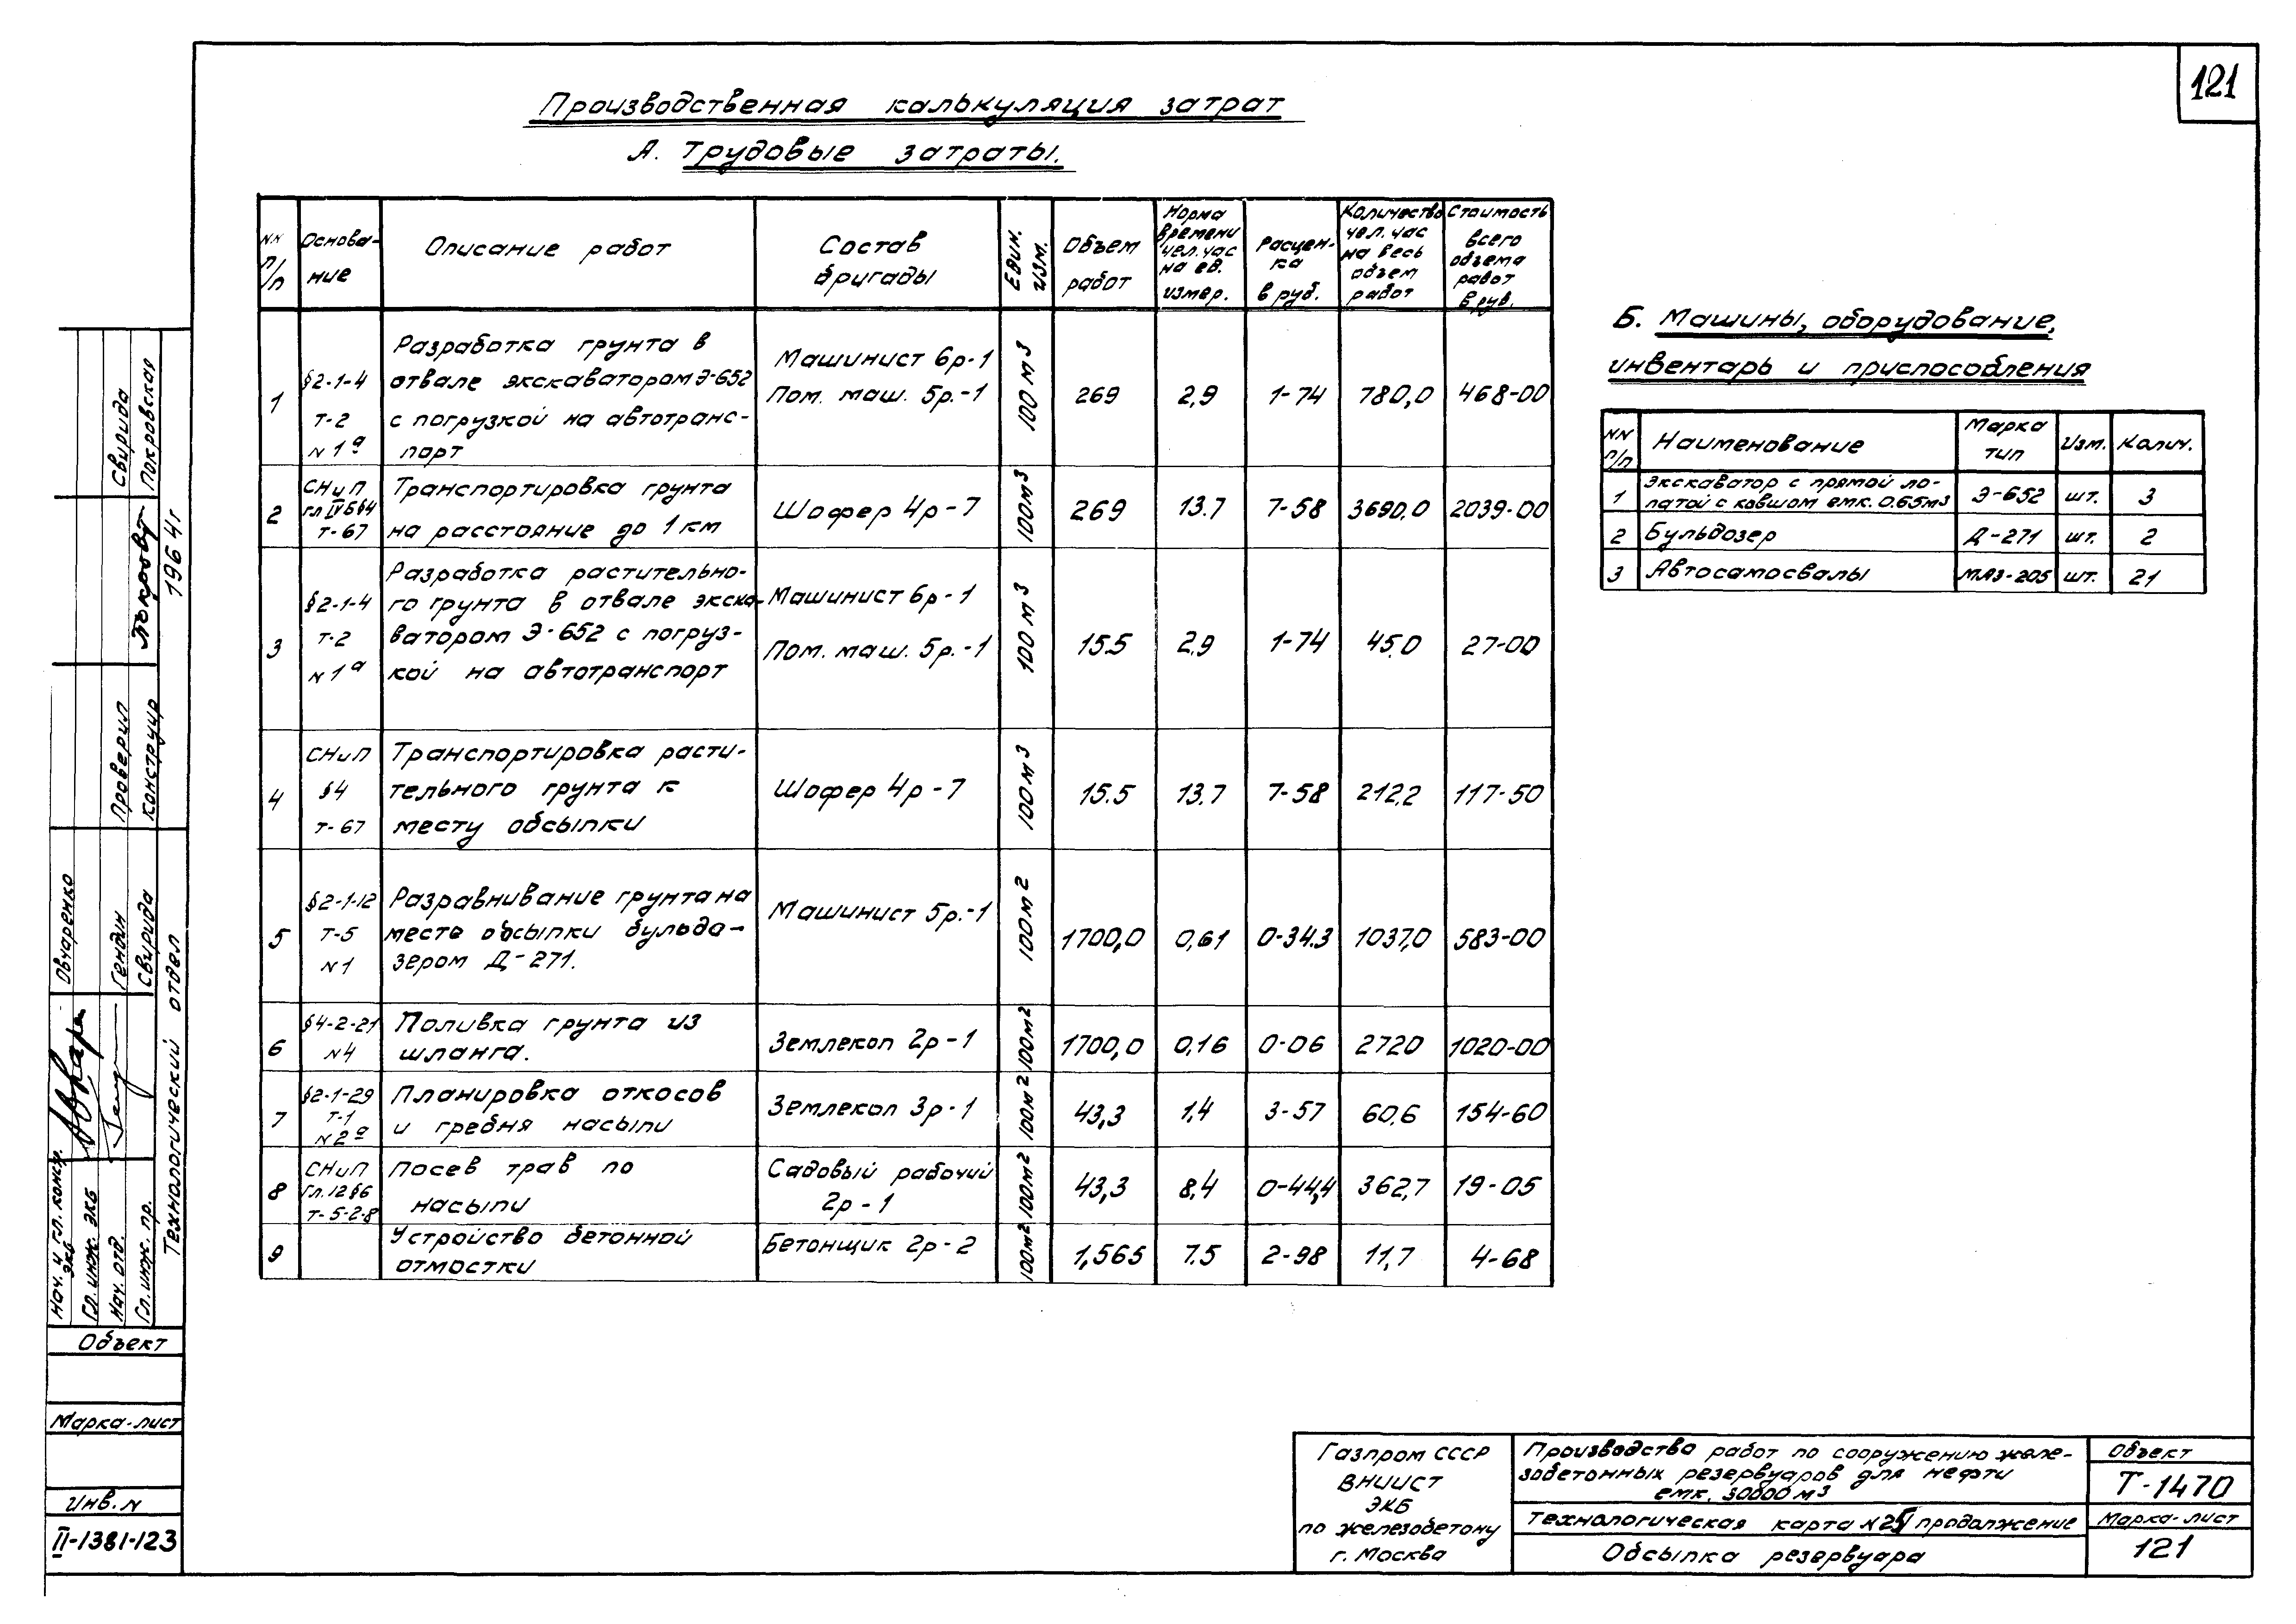 121
Производственная калькуляция затрат
А. Трудовые затраты.
NN п/п | Основа-ние | Описание работ | Состав бригады | Един. изм. | Объем работ | Норма времени чел.час на ед. измер. | Расцен-ка в руб. | Количество чел.час на весь объем работ | Стоимость всего объема работ в руб.
1 | §2-1-4 Т-2 N1а | Разработка грунта в отвале экскаватором Э-652 с погрузкой на автотранс-порт | Машинист 6р-1 Пом. маш. 5р.-1 | 100 м3 | 269 | 2,9 | 1-74 | 780,0 | 468-00
2 | СНиП гл IV Б §4 Т-67 | Транспортировка грунта на расстояние до 1 км | Шофер 4р-7 | 100м3 | 269 | 13.7 | 7-58 | 3690,0 | 2039-00
3 | §2-1-4 Т-2 N1а | Разработка растительно-го грунта в отвале экска-ватором Э-652 с погруз-кой на автотранспорт | Машинист 6р-1 Пом. маш. 5р.-1 | 100 м3 | 15.5 | 2,9 | 1-74 | 45,0 | 27-00
4 | СНиП §4 Т-67 | Транспортировка расти-тельного грунта к месту обсыпки | Шофер 4р-7 | 100м3 | 15.5 | 13.7 | 7-58 | 212,2 | 117-50
5 | §2-1-12 Т-5 N1 | Разравнивание грунта на месте обсыпки бульдо-зером Д-271. | Машинист 5р.-1 | 100м2 | 1700,0 | 0,61 | 0-34.3 | 1037,0 | 583-00
6 | §4-2-21 N4 | Поливка грунта из шланга. | Землекоп 2р-1 | 100м2 | 1700,0 | 0,16 | 0-06 | 2720 | 1020-00
7 | §2-1-29 Т-1 N2а | Планировка откосов и гребня насыпи | Землекоп 3р-1 | 100м2 | 43,3 | 1,4 | 3-57 | 60,6 | 154-60
8 | СНиП Гл.12 §6 Т-5-2-8 | Посев трав по насыпи | Садовый рабочий 2р-1 | 100м2 | 43,3 | 8,4 | 0-44,4 | 362,7 | 19-05
9 | Устройство бетонной отмостки | Бетонщик 2р-2 | 100м2 | 1,565 | 7.5 | 2-98 | 11,7 | 4-68
Б. Машины, оборудование,
инвентарь и приспособления
NN п/п | Наименование | Марка тип | Изм. | Колич.
1 | Экскаватор с прямой ло-патой с ковшом емк. 0.65м3 | Э-652 | шт. | 3
2 | Бульдозер | Д-271 | шт. | 2
3 | Автосамосвалы | МАЗ-205 | шт. | 21
Нач. и гл. констр. ЭКБ | Овчаренко
Гл. инж. ЭКБ
Нач. отд. | Гендин | Проверил | Свирида
Гл. инж. пр. | Свирида | Конструир | Покровская
Технологический отдел | 1964г
Объект
Марка-лист
Инв. N
II-1381-123
Газпром СССР
ВНИИСТ
ЭКБ
по железобетону
г. Москва
Производство работ по сооружению желе-
зобетонных резервуаров для нефти
емк. 30000 м3
Технологическая карта N25 продолжение
Обсыпка резервуара
Объект
Т-1470
Марка-лист
121